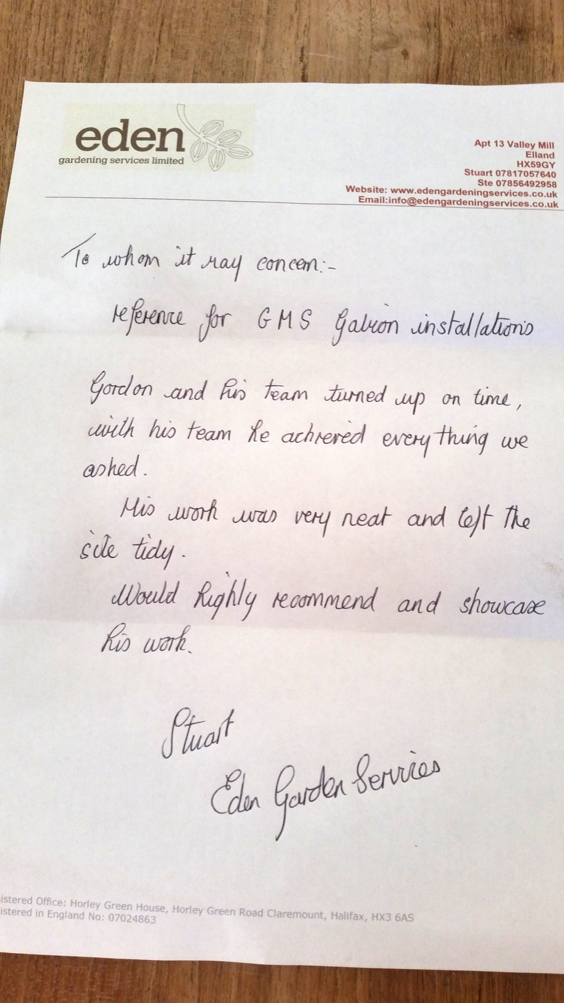 eden
gardening services limited
Apt 13 Valley Mill
Elland
HX59GY
Stuart 07817057640
Ste 07856492958
Website: www.edengardeningservices.co.uk
Email:info@edengardeningservices.co.uk
To whom it may concern:-
reference for GMS Gabion installations
Gordon and his team turned up on time,
with his team he achieved everything we
asked.
His work was very neat and left the
site tidy.
Would highly recommend and showcase
his work.
Stuart
Eden Garden Services
istered Office: Horley Green House, Horley Green Road Claremount, Halifax, HX3 6AS
istered in England No: 07024863